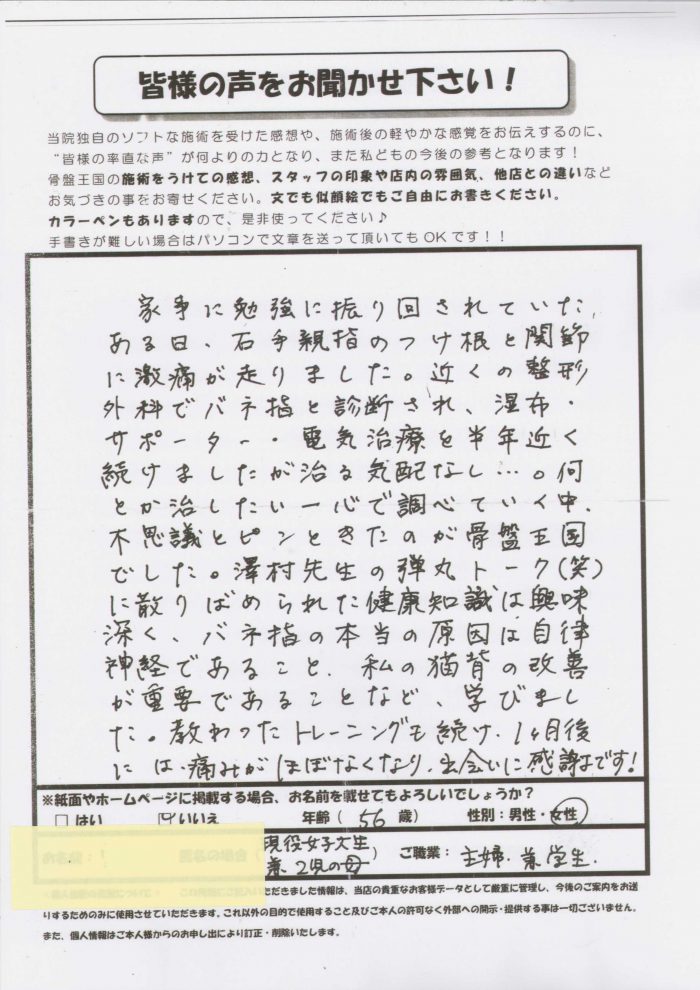 皆様の声をお聞かせ下さい！
当院独自のソフトな施術を受けた感想や、施術後の軽やかな感覚をお伝えするのに、
“皆様の率直な声”が何よりの力となり、また私どもの今後の参考となります！
骨盤王国の施術をうけての感想、スタッフの印象や店内の雰囲気、他店との違いなど
お気づきの事をお寄せください。文でも似顔絵でもご自由にお書きください。
カラーペンもありますので、是非使ってください♪
手書きが難しい場合はパソコンで文章を送って頂いてもOKです！！
家事に勉強に振り回されていた、
ある日、右手親指のつけ根と関節
に激痛が走りました。近くの整形
外科でバネ指と診断され、湿布・
サポーター・電気治療を半年近く
続けましたが治る気配なし…。何
とか治したい一心で調べていく中、
不思議とピンときたのが骨盤王国
でした。澤村先生の弾丸トーク(笑)
に散りばめられた健康知識は興味
深く、バネ指の本当の原因は自律
神経であること、私の猫背の改善
が重要であることなど、学びまし
た。教わったトレーニングも続け、1ヶ月後
には、痛みがほぼなくなり、出会いに感謝です!
※紙面やホームページに掲載する場合、お名前を載せてもよろしいでしょうか？
□ はい □ いいえ 年齢（ 56 歳） 性別：男性・女性
現役女子大生
兼 2児の母） ご職業： 主婦・兼学生.
ただきました情報は、当店の貴重なお客様データとして厳重に管理し、今後のご案内をお送
りするためのみに使用させていただきます。これ以外の目的で使用すること及びご本人の許可なく外部への開示・提供する事は一切ございません。
また、個人情報はご本人様からのお申し出により訂正・削除いたします。